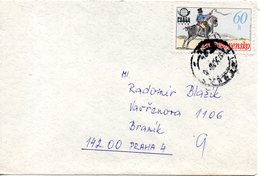 PRAGA
60
h
Československo
MI
Radomír Blažík
Vavřenova 1106
Braník
142 00 PRAHA 4